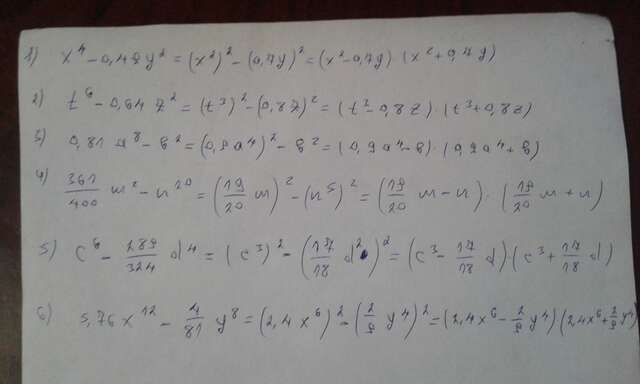 1) x⁴ - 0,49y² = (x²)² - (0,7y)² = (x² - 0,7y) · (x² + 0,7y)
2) t⁶ - 0,64z² = (t³)² - (0,8z)² = (t³ - 0,8z) · (t³ + 0,8z)
3) 0,81a⁸ - b² = (0,9a⁴)² - b² = (0,9a⁴ - b) · (0,9a⁴ + b)
4) 361/400 m² - n²⁰ = (19/20 m)² - (n⁵)² = (19/20 m - n) · (19/20 m + n)
5) c⁶ - 289/324 d⁴ = (c³)² - (17/18 d²)² = (c³ - 17/18 d) · (c³ + 17/18 d)
6) 5,76x¹² - 4/81 y⁸ = (2,4x⁶)² - (2/9 y⁴)² = (2,4x⁶ - 2/9 y⁴)(2,4x⁶ + 2/9 y⁴)